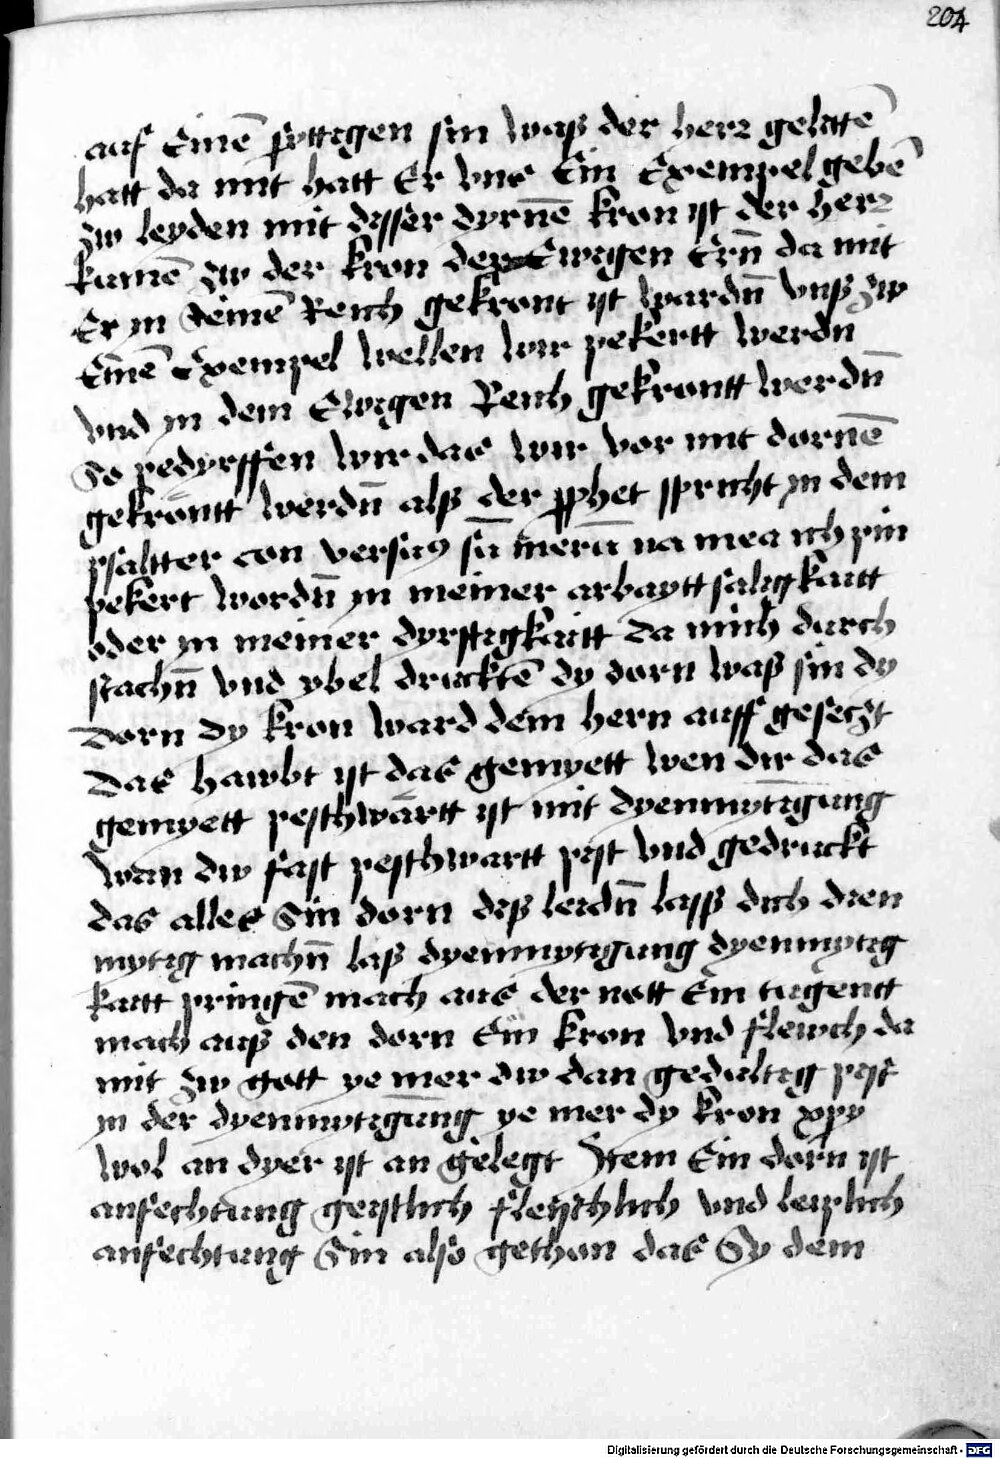 204
auf Einē syttigen sin waß der herr gelitē
hatt da mit hatt Er vns Ein Exempel gebē
zw leyden mit disser dyrnē kron ist der herr
kumē zw der kron der Ewigen Ern̄ da mit
Er yn seinē Reich gekront ist wardn̄ vnß zw
Einē Exempel wellen wir pekertt werdn
vnd yn dem Ewigen Reich gekrontt werdn̄
So pedyrffen wir das wir vor mit dornē
gekrontt werdn̄ alß der p̄phet spricht yn dem
psaltter con versus sū in erūna mea ich pin
pekert wordn̄ yn meiner arbaytt saligkaitt
oder yn meiner dyrftigkaitt da mich durch
stachn̄ vnd ybel drucktē dy dorn waß sin dy
dorn dy kron ward dem hern auff gesetzt
das hawbt ist das gemyett wen dir das
gemyett peschwartt ist mit dyenmytigung
wan dw fast peschwartt pist vnd gedruckt
das alles sin dorn diß leidn̄ lass dich dien
mytig machn̄ laß dyenmytigung dyenmytig
kaitt pringē mach aus der nott Ein tugentt
mach auß den dorn Ein kron vnd flewch da
mit zw gott ye mer dw dan gedultig pist
yn der dyenmytigung ye mer dy kron xp̄y
wol an dyer ist an gelegt Item Ein dorn ist
anfechtung geistlich fleyschlich vnd leiplich
anfechtung Sin also gethon das Sy dem
Digitalisierung gefördert durch die Deutsche Forschungsgemeinschaft - DFG